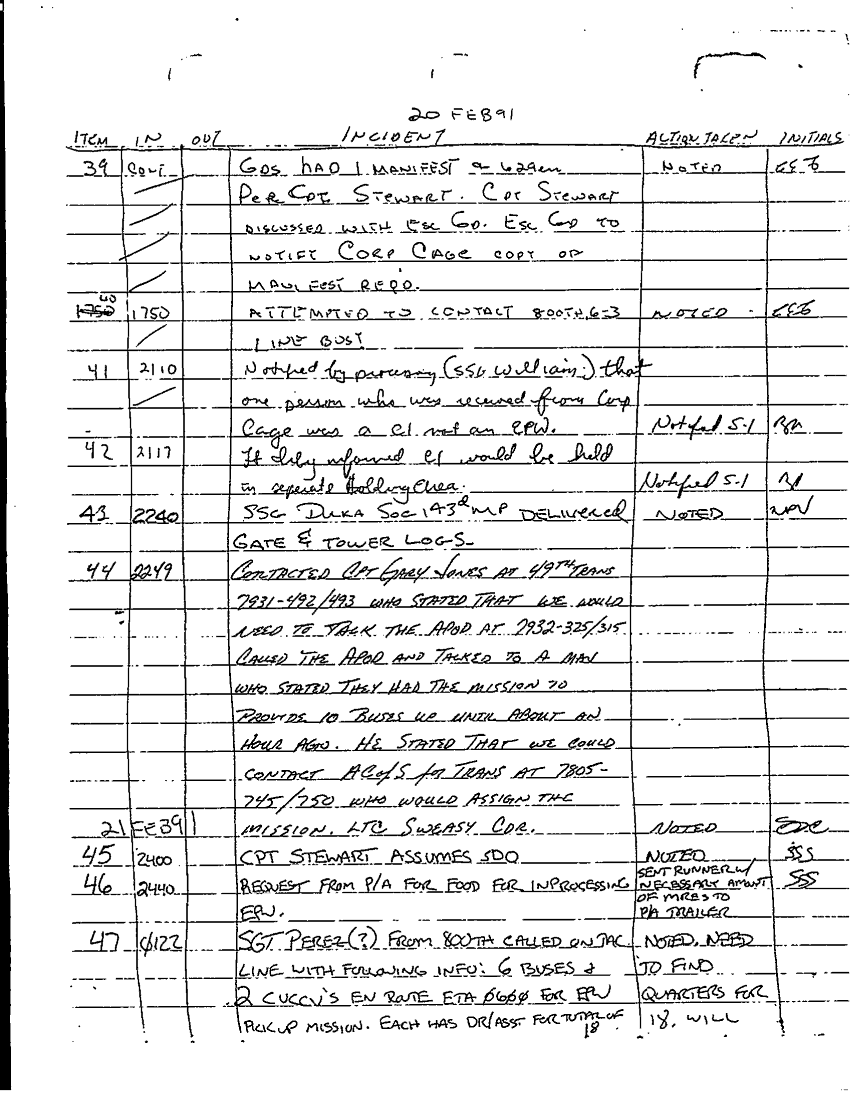 20 FEB91
ITEM IN OUT INCIDENT ACTION TAKEN INITIALS
39 CONT. GDS HAD 1 MANIFEST NOTED
PER CPT STEWART. CPT STEWART
DISCUSSED WITH ESC GD. ESC GD TO
NOTIFY CORP CAGE COPY OF
MANIFEST REQD.
40 1750 ATTEMPTED TO CONTACT 800TH, G-3 NOTED
LINE BUSY
41 2110 Notified by processing (SSG Williams) that
one person who was received from Corp
Cage was a CI not an EPW. Notified S-1
42 2117 informed CI would be held
in seperate Holding Area. Notified S-1
43 2240 SSG DUKA SOG 143d MP DELIVERED NOTED
GATE & TOWER LOGS-
44 2249 CONTACTED CPT GARY JONES AT 49TH TRANS
7931-492/493 WHO STATED THAT WE WOULD
NEED TO TALK THE APOD AT 7932-325/315
CALLED THE APOD AND TALKED TO A MAN
WHO STATED THEY HAD THE MISSION TO
PROVIDE 10 BUSES UP UNTIL ABOUT AN
HOUR AGO. HE STATED THAT WE COULD
CONTACT ACofS for TRANS AT 7805-
745/750 WHO WOULD ASSIGN THE
21 FEB91 MISSION. LTC SWEASY CDR. NOTED
45 2400 CPT STEWART ASSUMES SDO NOTED SSS
46 2440 REQUEST FROM P/A FOR FOOD FOR INPROCESSING SENT RUNNER W/ SSS
NECESSARY AMOUNT
EPW. OF MRES TO
P/A TRAILER
47 0122 SGT PEREZ(?) FROM 800TH CALLED ON TAC NOTED, NEED
LINE WITH FOLLOWING INFO: 6 BUSES & TO FIND
2 CUCCV'S EN ROUTE ETA 0600 FOR EPW QUARTERS FOR
PICKUP MISSION. EACH HAS DR/ASST FOR TOTAL OF 18 18. WILL